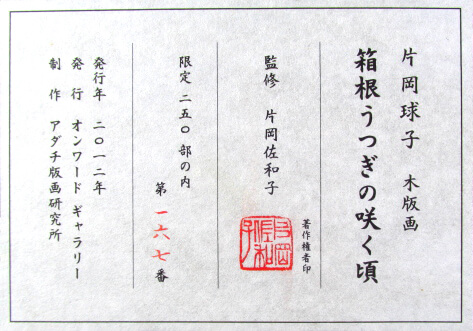 片岡球子 木版画
箱根うつぎの咲く頃
監修 片岡佐和子
著作権者印
片岡佐和子
限定 二五〇 部の内
第 一六七 番
発行年 二〇一二年
発行 オンワード ギャラリー
制作 アダチ版画研究所